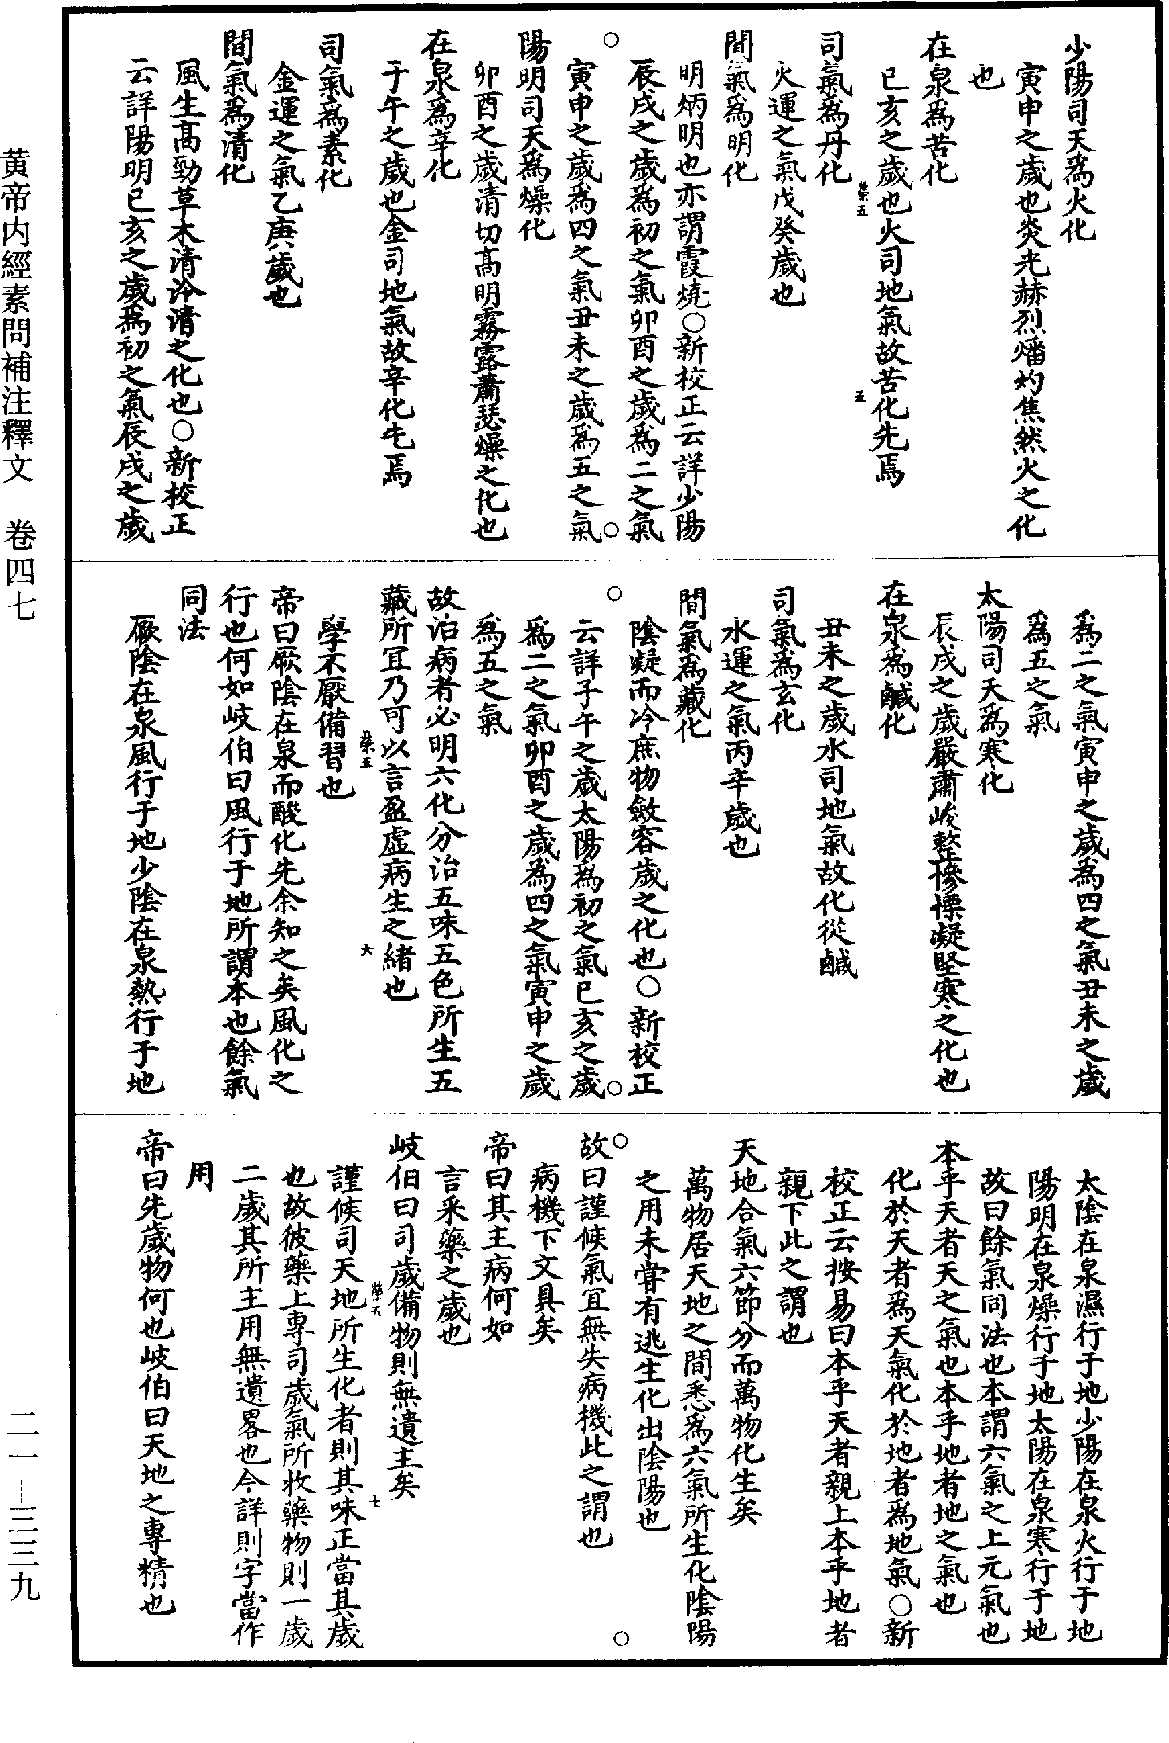 少陽司天爲火化
寅申之歲也炎光赫烈燔灼焦然火之化
也
在泉爲苦化
巳亥之歲也火司地氣故苦化先焉
司氣爲丹化
火運之氣戊癸歲也
間氣爲明化
明炳明也亦謂霞燒○新校正云詳少陽
辰戌之歲爲初之氣卯酉之歲爲二之氣
寅申之歲爲四之氣丑未之歲爲五之氣
陽明司天爲燥化
卯酉之歲清切高明霧露蕭瑟燥之化也
在泉爲辛化
子午之歲也金司地氣故辛化先焉
司氣爲素化
金運之氣乙庚歲也
間氣爲清化
風生高勁草木清冷清之化也○新校正
云詳陽明巳亥之歲爲初之氣辰戌之歲
爲二之氣寅申之歲爲四之氣丑未之歲
爲五之氣
太陽司天爲寒化
辰戌之歲嚴肅峻整慘慄凝堅寒之化也
在泉爲鹹化
丑未之歲水司地氣故化從鹹
司氣爲玄化
水運之氣丙辛歲也
間氣爲藏化
陰凝而冷庶物斂容歲之化也○新校正
云詳子午之歲太陽爲初之氣巳亥之歲
爲二之氣卯酉之歲爲四之氣寅申之歲
爲五之氣
故治病者必明六化分治五味五色所生五
藏所宜乃可以言盈虛病生之緒也
學不厭備習也
帝曰厥陰在泉而酸化先余知之矣風化之
行也何如岐伯曰風行于地所謂本也餘氣
同法
厥陰在泉風行于地少陰在泉熱行于地
太陰在泉濕行于地少陽在泉火行于地
陽明在泉燥行于地太陽在泉寒行于地
故曰餘氣同法也本謂六氣之上元氣也
本乎天者天之氣也本乎地者地之氣也
化於天者爲天氣化於地者爲地氣○新
校正云按易曰本乎天者親上本乎地者
親下此之謂也
天地合氣六節分而萬物化生矣
萬物居天地之間悉爲六氣所生化陰陽
之用未嘗有逃生化出陰陽也
故曰謹候氣宜無失病機此之謂也
病機下文具矣
帝曰其主病何如
言采藥之歲也
岐伯曰司歲備物則無遺主矣
謹候司天地所生化者則其味正當其歲
也故彼藥上專司歲氣所收藥物則一歲
二歲其所主用無遺畧也今詳則字當作
用
帝曰先歲物何也岐伯曰天地之專精也
黃帝内經素問補注釋文　卷四七
二一—三三九